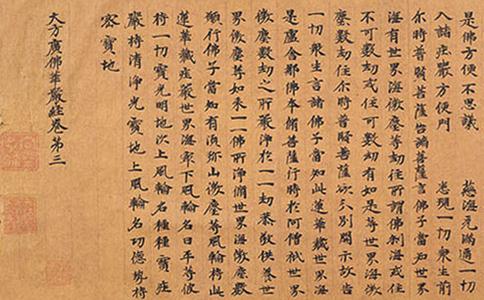 是佛方便不思議 慈海充滿遍一切
入諸莊嚴方便門 悉現一切眾生前
尔時普賢菩薩告諸菩薩言佛子當知世界
海有世界海微塵等劫住所謂佛刹海或住
不可數劫或住可數劫有如是等世界海微
塵數劫住尔時普賢菩薩欲分別開示故告
一切眾生言諸佛子當知此蓮華藏世界海
是盧舍那佛本修菩薩行時於阿僧祇世界
微塵數劫之所嚴淨於一一劫恭敬供養世
界微塵等如來一一佛所淨修世界海微塵數
願行佛子當知有須弥山微塵等風輪持此
蓮華藏莊嚴世界海最下風輪名曰平等彼
持一切寶光明地次上風輪名種種寶莊
嚴持清淨光寶地上風輪名功德勢持
密寶地
大方廣佛華嚴經卷第三